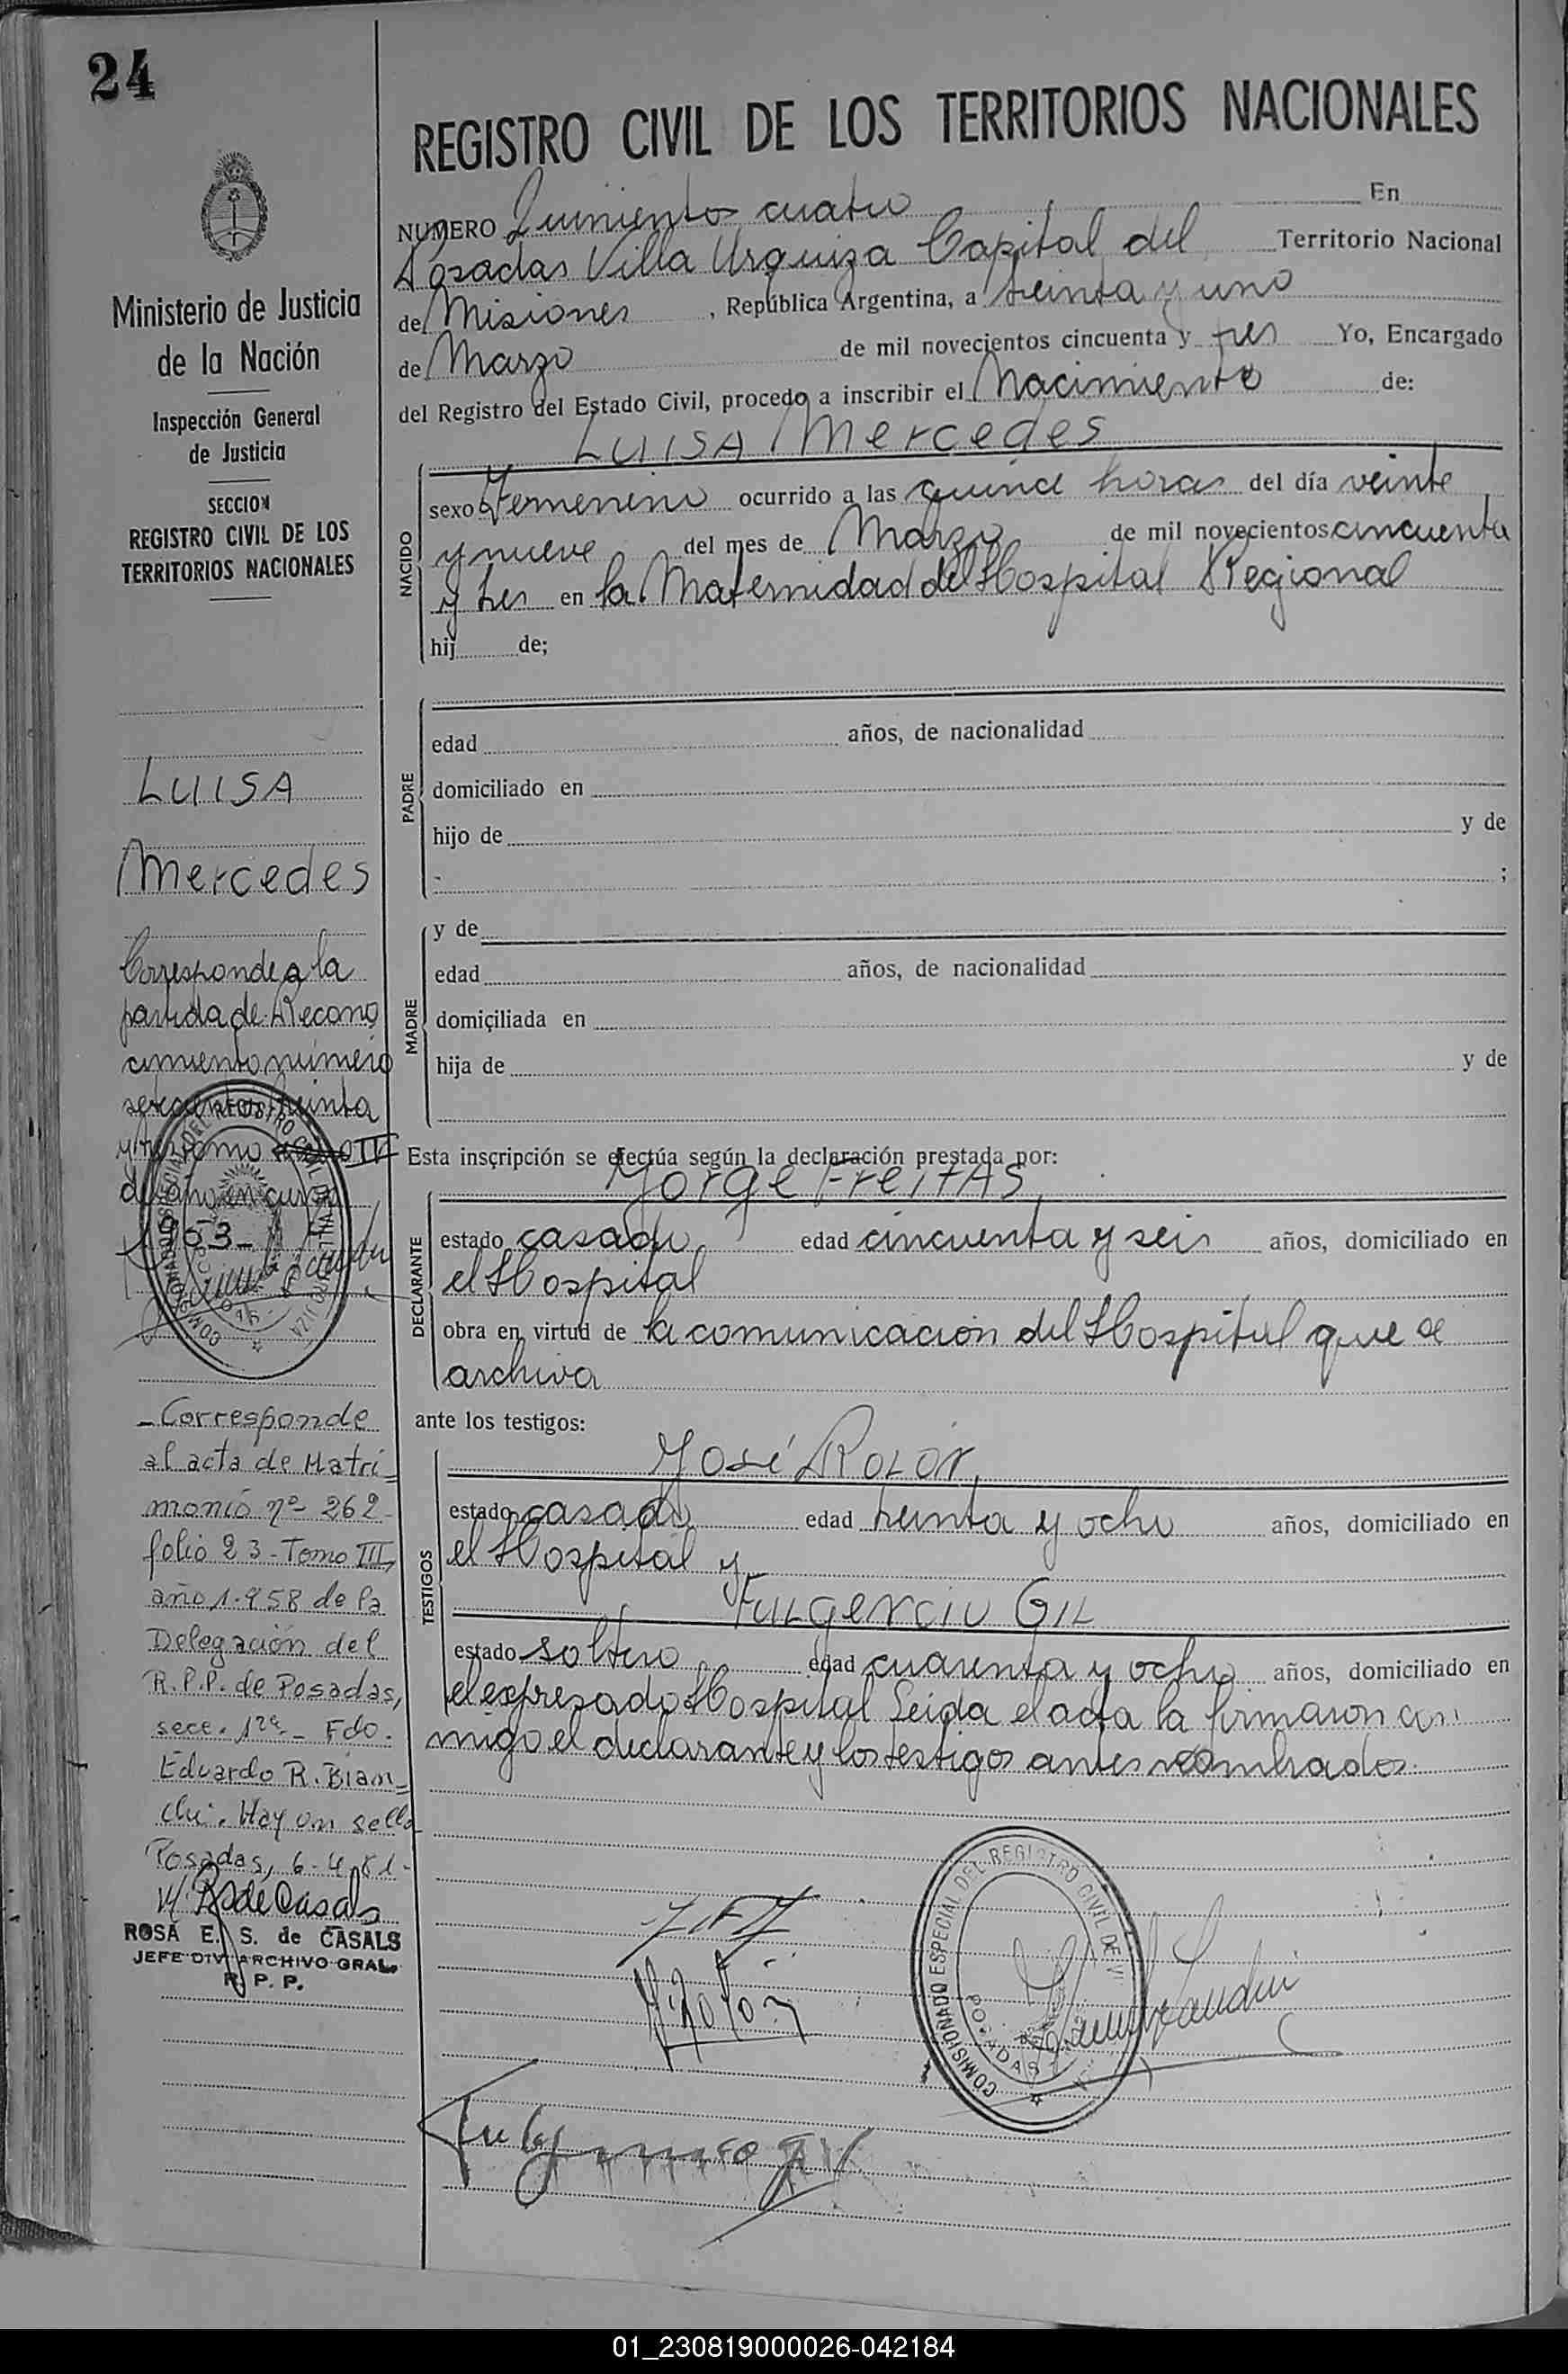 24
Ministerio de Justicia
de la Nación
Inspección General
de Justicia
SECCION
REGISTRO CIVIL DE LOS
TERRITORIOS NACIONALES
LUISA
Mercedes
Corresponde a la
partida de Recono
cimiento número
treinta
y tres tomo IV
del año en curso
1953-
-Corresponde
al acta de Matri=
monio nº 262-
folio 23-Tomo III,
año 1.958 de la
Delegación del
R.P.P. de Posadas,
secc. 1ra- Fdo.
Eduardo R. Bian=
chi. Hay un sello
Posadas, 6-4-81-
ROSA E. S. de CASALS
JEFE DIV. ARCHIVO GRAL.
R. P. P.
REGISTRO CIVIL DE LOS TERRITORIOS NACIONALES
NUMERO Quinientos cuatro En
Posadas Villa Urquiza Capital del Territorio Nacional
de Misiones, República Argentina, a treinta y uno
de Marzo de mil novecientos cincuenta y tres Yo, Encargado
del Registro del Estado Civil, procedo a inscribir el Nacimiento de:
LUISA Mercedes
NACIDO
sexo Femenino ocurrido a las quince horas del día veinte
y nueve del mes de Marzo de mil novecientos cincuenta
y tres en la Maternidad del Hospital Regional
hij de;
PADRE
edad años, de nacionalidad
domiciliado en
hijo de y de
;
MADRE
y de
edad años, de nacionalidad
domiciliada en
hija de y de
Esta inscripción se efectúa según la declaración prestada por:
Jorge FreitAS,
DECLARANTE
estado casado edad cincuenta y seis años, domiciliado en
el Hospital
obra en virtud de la comunicacion del Hospital que se
archiva
ante los testigos:
José ROLON,
TESTIGOS
estado casado edad treinta y ocho años, domiciliado en
el Hospital y
Fulgencio GIL
estado soltero edad cuarenta y ocho años, domiciliado en
el expresado Hospital Leida el acta la firmaron con
migo el declarante y los testigos antes nombrados.
COMISIONADO ESPECIAL DEL REGISTRO CIVIL DE
POSADAS
01_230819000026-042184